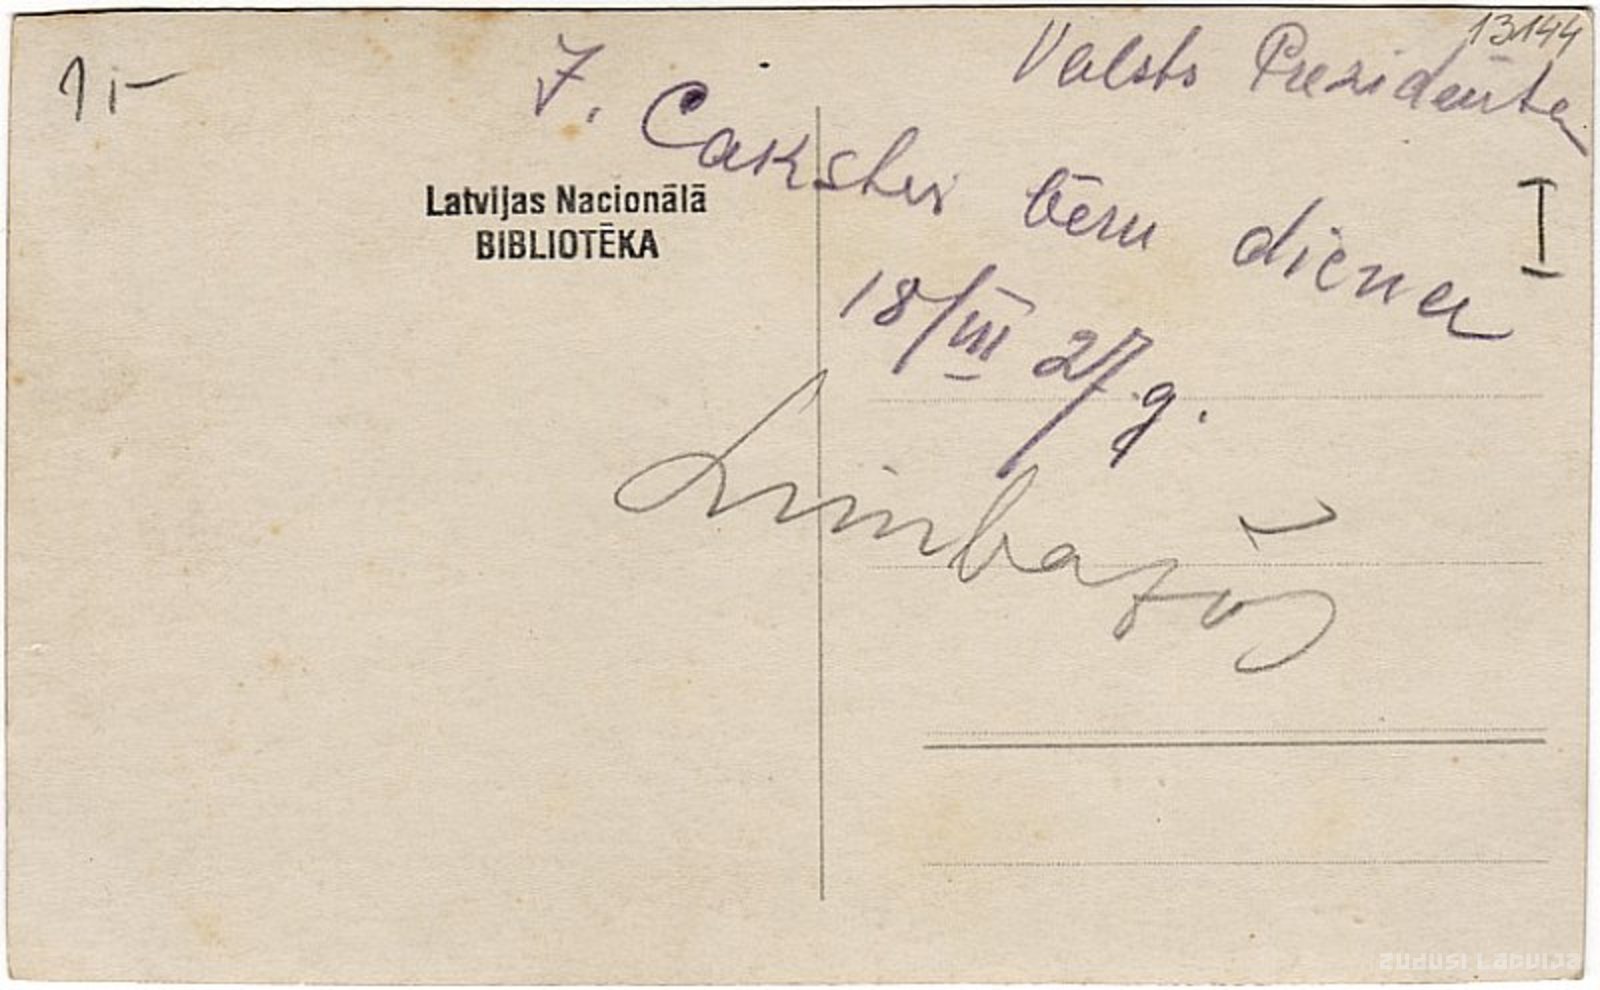 13144
Valsts Prezidenta
J. Cakstes bēru diena
18/III 27 g.
Limbažos
1,-
I
Latvijas Nacionālā
BIBLIOTĒKA
zudusi Latvija